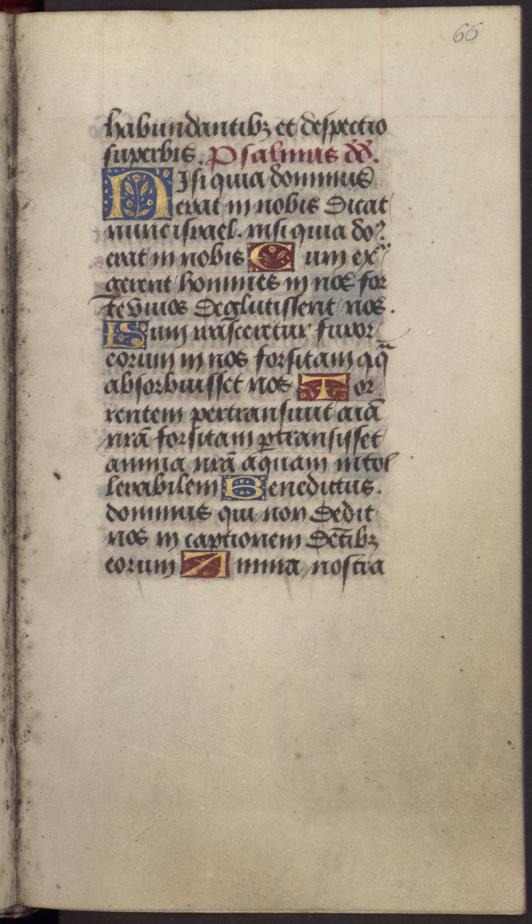 66
habundantibȝ et despectio
superbis. Psalmus dd.
NIsi quia dominus
erat in nobis dicat
nunc israel. nisi quia do
erat in nobis Cum ex
gerent homines in nos for
te viuos deglutissent nos.
Cum irasceretur furor
eorum in nos forsitam qq̄
absorbuisset nos Tor
rentem pertransiuit aīā
nr̄ā forsitam ꝑtransisset
anima nr̄ā aquam intol
lerabilem Benedictus.
dominus qui non dedit
nos in captionem dētibȝ
eorum Anima nostra